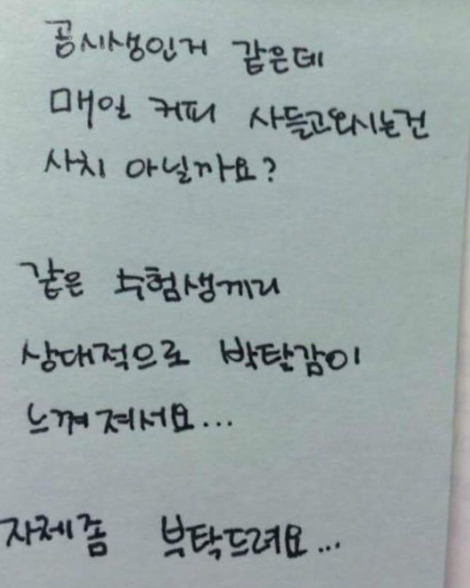 공시생인거 같은데
매일 커피 사들고오시는건
사치 아닐까요?
같은 수험생끼리
상대적으로 박탈감이
느껴져서요...
자제좀 부탁드려요...